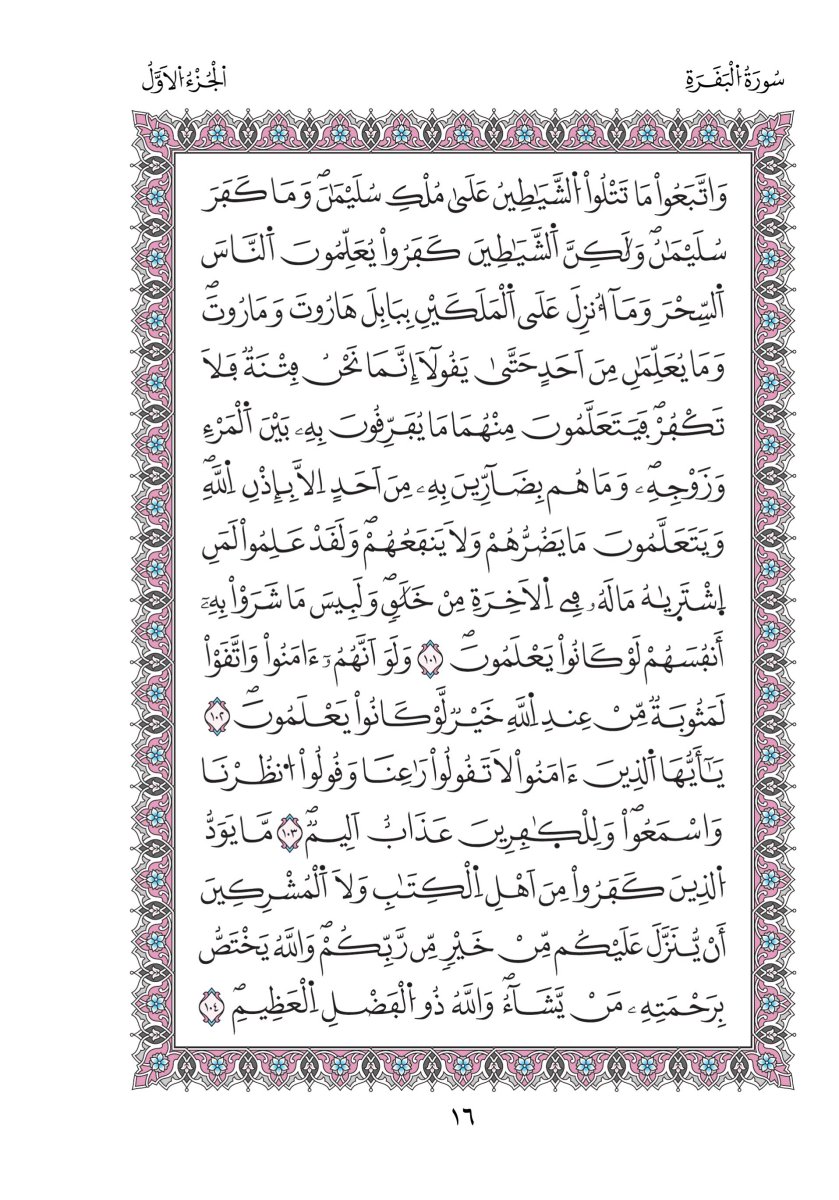 سُورَةُ اُ۬لْبَقَرَةِ
اَ۬لْجُزْءُ اُ۬لَاوَّلُ
وَاتَّبَعُواْ مَا تَتْلُواْ اُ۬لشَّيَٰطِينُ عَلَىٰ مُلْكِ سُلَيْمَٰنَۖ وَمَا كَفَرَ
سُلَيْمَٰنُۖ وَلَٰكِنَّ اَ۬لشَّيَٰطِينَ كَفَرُواْ يُعَلِّمُونَ اَ۬لنَّاسَ
اَ۬لسِّحْرَ وَمَآ أُنزِلَ عَلَى اَ۬لْمَلَكَيْنِ بِبَابِلَ هَارُوتَ وَمَارُوتَۖ
وَمَا يُعَلِّمَٰنِ مِنَ اَحَدٍ حَتَّىٰ يَقُولَآ إِنَّمَا نَحْنُ فِتْنَةٞ فَلَا
تَكْفُرْۖ فَيَتَعَلَّمُونَ مِنْهُمَا مَا يُفَرِّقُونَ بِهِۦ بَيْنَ اَ۬لْمَرْءِ
وَزَوْجِهِۦۖ وَمَا هُم بِضَآرِّينَ بِهِۦ مِنَ اَحَدٍ اِلَّا بِإِذْنِ اِ۬للَّهِۖ
وَيَتَعَلَّمُونَ مَا يَضُرُّهُمْ وَلَا يَنفَعُهُمْۖ وَلَقَدْ عَلِمُواْ لَمَنِ
اِ۪شْتَر۪يٰهُ مَا لَهُۥ فِے اِ۬لَاخِرَةِ مِنْ خَلَٰقٖۖ وَلَبِيسَ مَا شَرَوْاْ بِهِۦٓ
أَنفُسَهُمْ لَوْ كَانُواْ يَعْلَمُونَۖ ١٠١ وَلَوَ اَنَّهُمُۥٓ ءَامَنُواْ وَاتَّقَوْاْ
لَمَثُوبَةٞ مِّنْ عِندِ اِ۬للَّهِ خَيْرٞ لَّوْ كَانُواْ يَعْلَمُونَۖ ١٠٢
يَٰٓأَيُّهَا اَ۬لذِينَ ءَامَنُواْ لَا تَقُولُواْ رَٰعِنَا وَقُولُواْ اُ۟نظُرْنَا
وَاسْمَعُواْۖ وَلِلْكٰ۪فِرِينَ عَذَابٌ اَلِيمٞۖ ١٠٣ مَّا يَوَدُّ
اُ۬لذِينَ كَفَرُواْ مِنَ اَهْلِ اِ۬لْكِتَٰبِ وَلَا اَ۬لْمُشْرِكِينَ
أَنْ يُّنَزَّلَ عَلَيْكُم مِّنْ خَيْرٖ مِّن رَّبِّكُمْۖ وَاللَّهُ يَخْتَصُّ
بِرَحْمَتِهِۦ مَنْ يَّشَآءُۖ وَاللَّهُ ذُو اُ۬لْفَضْلِ اِ۬لْعَظِيمِۖ ١٠٤
١٦